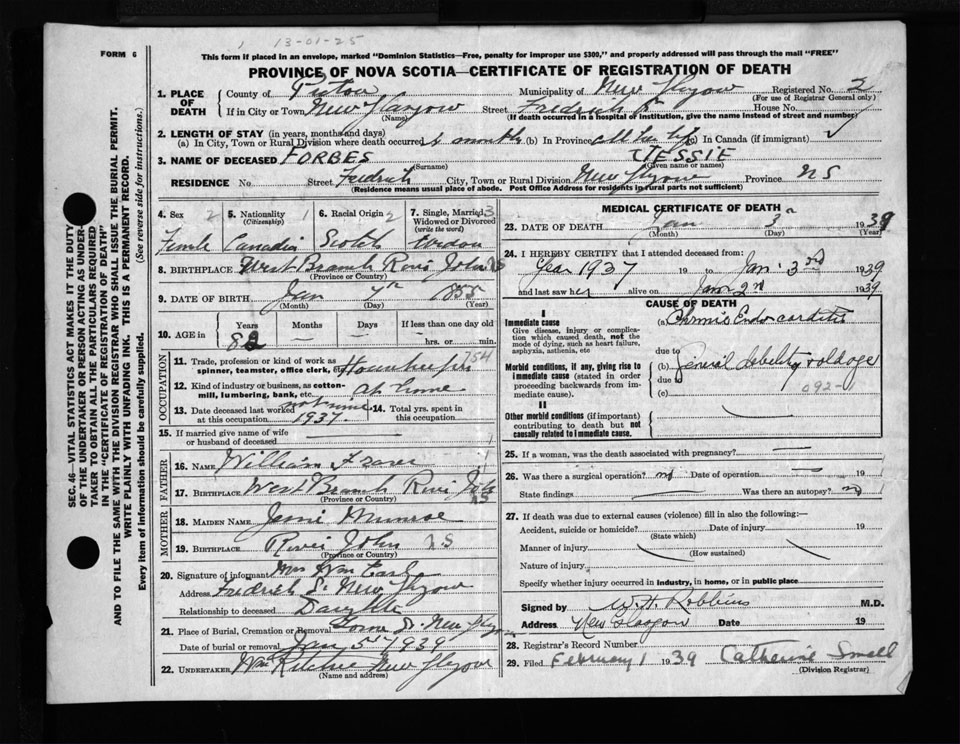 13-01-25
FORM 6
This form if placed in an envelope, marked "Dominion Statistics—Free, penalty for improper use $300," and properly addressed will pass through the mail "FREE"
PROVINCE OF NOVA SCOTIA—CERTIFICATE OF REGISTRATION OF DEATH
SEC. 46—VITAL STATISTICS ACT MAKES IT THE DUTY
OF THE UNDERTAKER OR PERSON ACTING AS UNDER-
TAKER TO OBTAIN ALL THE PARTICULARS REQUIRED
IN THE "CERTIFICATE OF REGISTRATION OF DEATH"
AND TO FILE THE SAME WITH THE DIVISION REGISTRAR WHO SHALL ISSUE THE BURIAL PERMIT.
WRITE PLAINLY WITH UNFADING INK. THIS IS A PERMANENT RECORD.
Every item of information should be carefully supplied. (See reverse side for instructions.)
1. PLACE OF DEATH County of Pictou Municipality of New Glasgow Registered No. 2
(For use of Registrar General only)
If in City or Town New Glasgow Street Fredrick St House No.
(Name) (If death occurred in a hospital of institution, give the name instead of street and number)
2. LENGTH OF STAY (in years, months and days)
(a) In City, Town or Rural Division where death occurred months (b) In Province all her life (c) In Canada (if immigrant)
3. NAME OF DECEASED FORBES JESSIE
(Surname) (Given name or names)
RESIDENCE No. Street Fredrick City, Town or Rural Division New Glasgow Province NS
(Residence means usual place of abode. Post Office Address for residents in rural parts not sufficient)
4. Sex 2 5. Nationality 1 6. Racial Origin 2 7. Single, Married 3
(Citizenship) Widowed or Divorced
(write the word)
Female Canadian Scotch Widow
8. BIRTHPLACE West Branch River John NS
(Province or Country)
9. DATE OF BIRTH Jan 7th 1855
(Month) (Day) (Year)
10. AGE in Years Months Days If less than one day
82 — — hrs. or min.
OCCUPATION
11. Trade, profession or kind of work as
spinner, teamster, office clerk, etc. Housekeeper 754
12. Kind of industry or business, as cotton-
mill, lumbering, bank, etc. at home
13. Date deceased last worked
at this occupation 1937 14. Total yrs. spent in
this occupation
15. If married give name of wife
or husband of deceased
FATHER
16. NAME William Fraser
17. BIRTHPLACE West Branch River John NS
(Province or Country)
MOTHER
18. MAIDEN NAME Munroe
19. BIRTHPLACE River John NS
(Province or Country)
20. Signature of informant Mrs Wm
Address Fredrick St New Glasgow
Relationship to deceased Daughter
21. Place of Burial, Cremation or Removal New Glasgow
Date of burial or removal Jan 5 1939
22. UNDERTAKER Wm Ritchie New Glasgow
(Name and address)
MEDICAL CERTIFICATE OF DEATH
23. DATE OF DEATH Jan 3rd 1939
(Month) (Day) (Year)
24. I HEREBY CERTIFY that I attended deceased from:
Year 1937 19 to Jan. 3rd 1939
and last saw her alive on Jan 2nd 1939
CAUSE OF DEATH
I
Immediate cause (a) Chronic Endocarditis
Give disease, injury or complica-
tion which caused death, not the
mode of dying, such as heart failure,
asphyxia, asthenia, etc
due to
Morbid conditions, if any, giving rise to
immediate cause (stated in order
proceeding backwards from im-
mediate cause).
(b) General debility & old age
due to
(c) 092-1
II
Other morbid conditions (if important)
contributing to death but not
causally related to immediate cause.
25. If a woman, was the death associated with pregnancy?
26. Was there a surgical operation? no Date of operation 19
State findings Was there an autopsy? no
27. If death was due to external causes (violence) fill in also the following:—
Accident, suicide or homicide? Date of injury 19
(State which)
Manner of injury
(How sustained)
Nature of injury
Specify whether injury occurred in industry, in home, or in public place
Signed by W.H. Robbins M.D.
Address New Glasgow Date 19
28. Registrar's Record Number
29. Filed February 1 1939 Catherine Small
(Division Registrar)